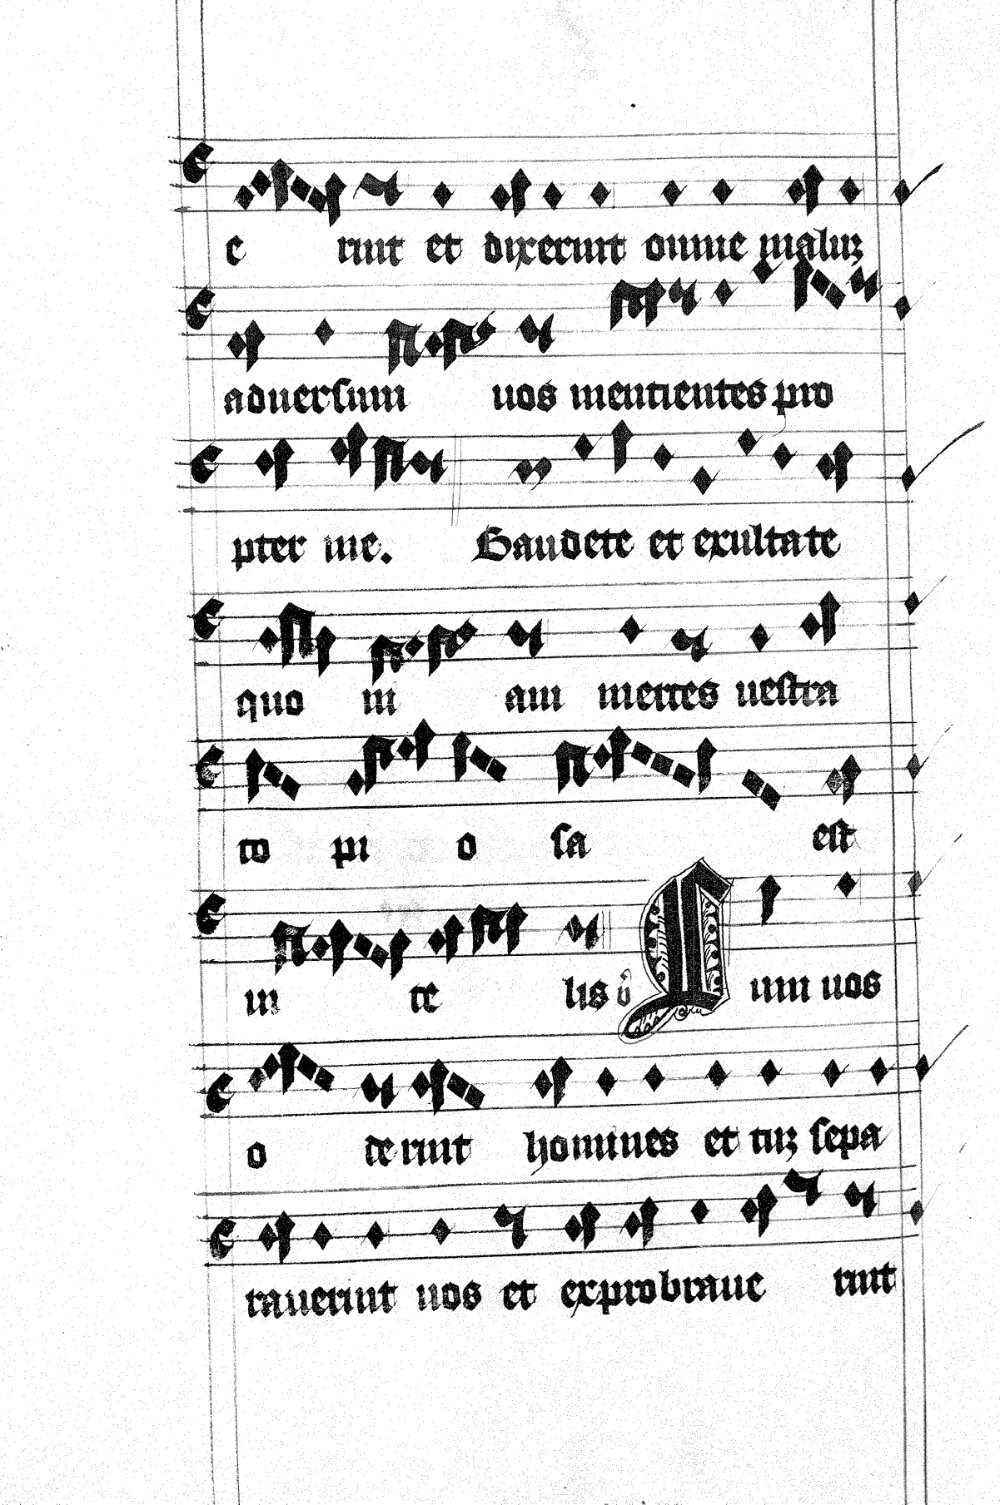 e runt et dixerunt omne maluꝫ
aduersum uos mentientes pro
pter me. Gaudete et exultate
quo ni am merces uestra
co pi o sa est
in ce lis v̂ Cum uos
o de runt homines et cuꝫ sepa
rauerint uos et exprobraue rint